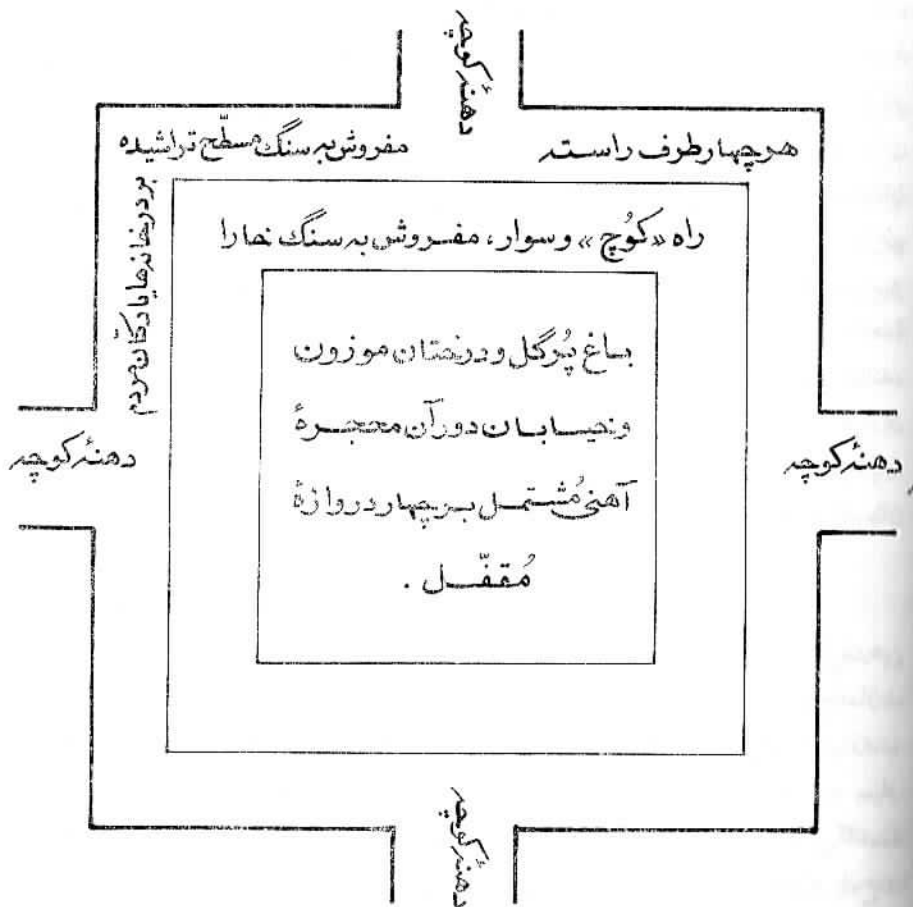 دهنهٔ کوچه
هر چهار طرف راسته مفروش به سنگ مسطّح تراشیده
بر در خانه‌ها یا دکّان مردم
راه «کُوچ» و سوار، مفروش به سنگ خارا
باغ پُرگل و درختان موزون
و خیابان دور آن محجرهٔ
آهنی مُشتمل بر چهار دروازهٔ
مُقفّل .
دهنهٔ کوچه
دهنهٔ کوچه
دهنهٔ کوچه